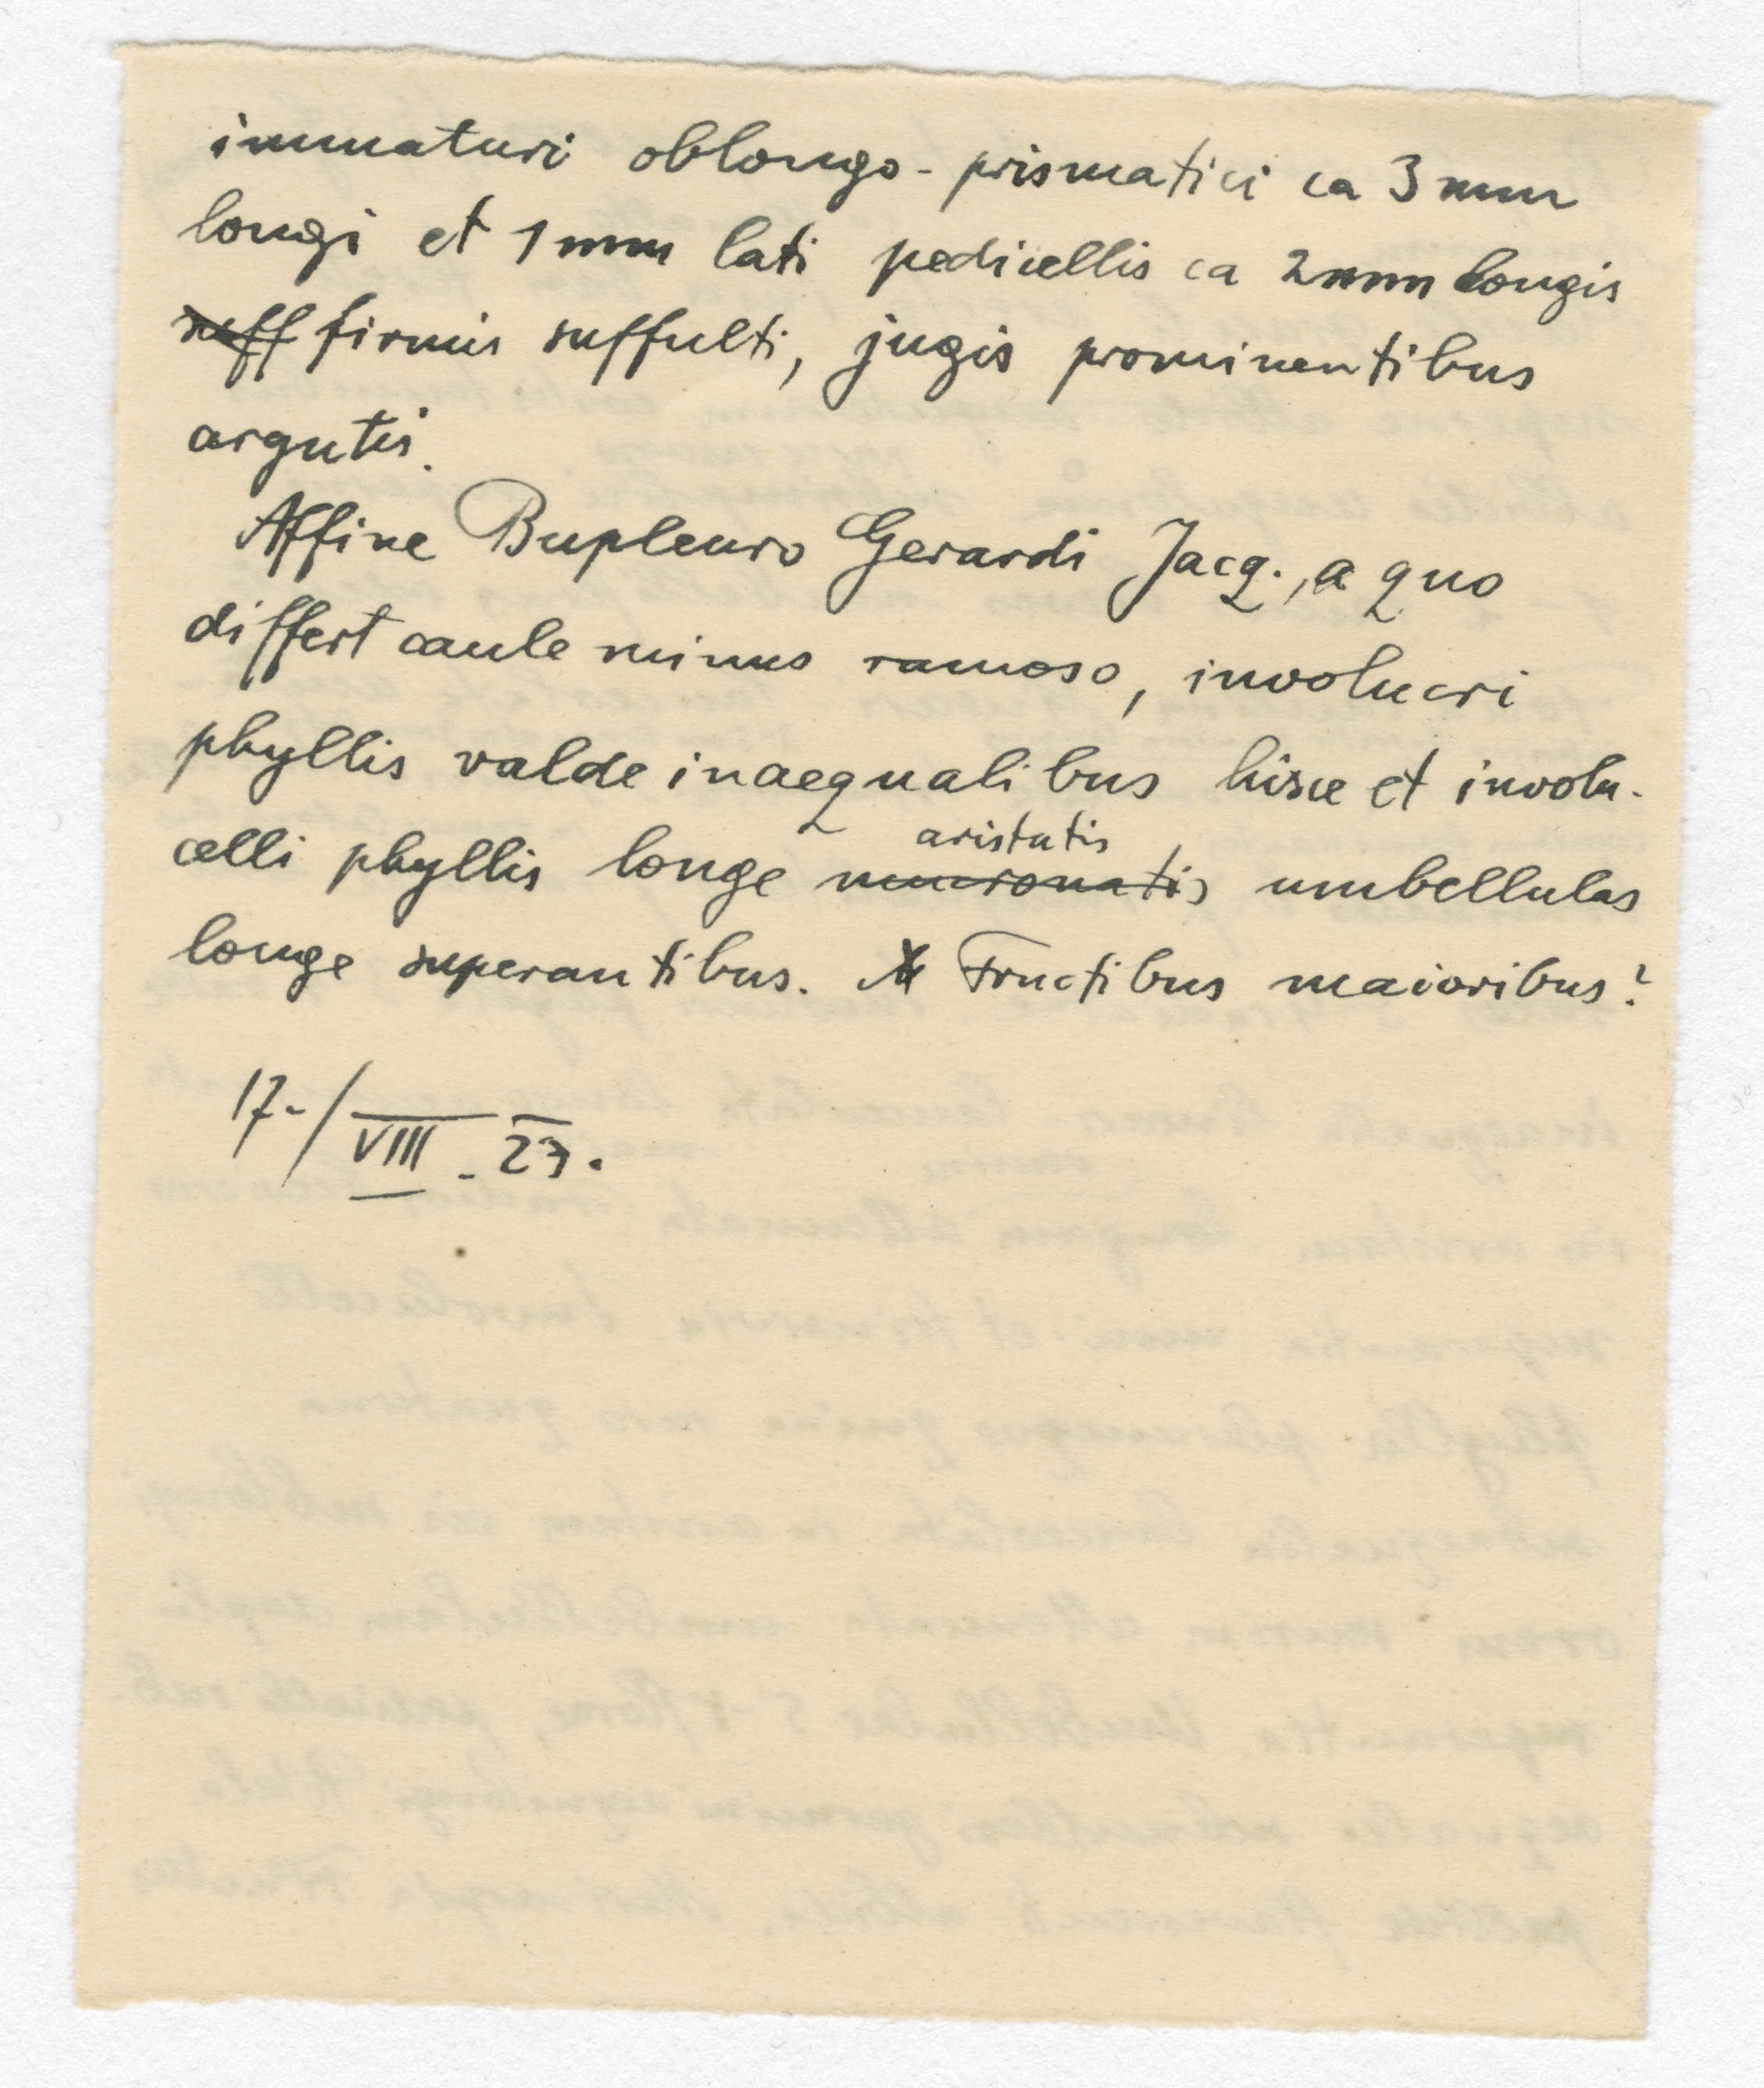 immaturi oblongo-prismatici ca 3 mm
longi et 1 mm lati pedicellis ca 2 mm longis
suff firmis suffulti, jugis prominentibus
argutis.
Affine Bupleuro Gerardi Jacq., a quo
differt caule minus ramoso, involucri
phyllis valde inaequalibus hisce et involu-
celli phyllis longe mucronatis aristatis umbellulas
longe superantibus. Fructibus maioribus?
17-/VIII. 27.